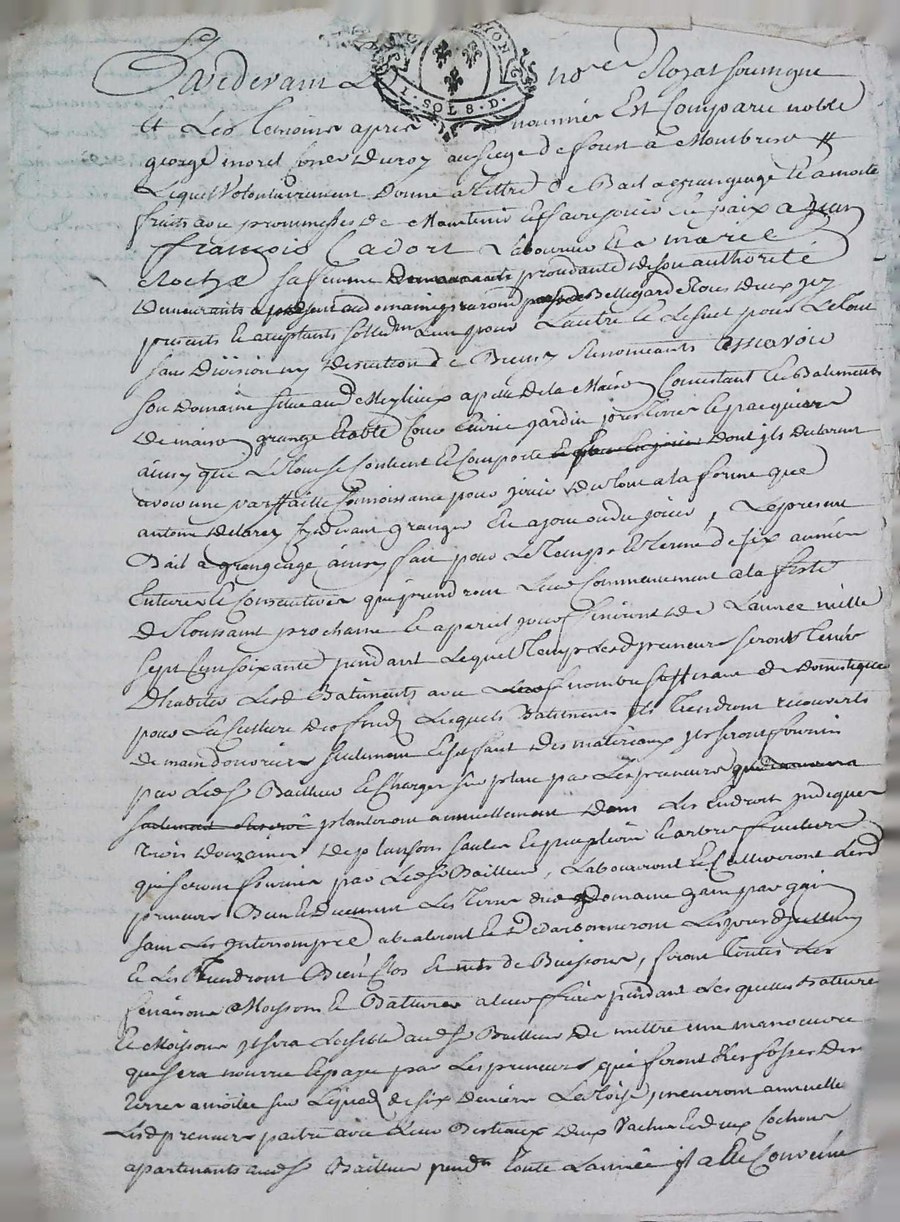 1. SOLS 8. D.
Pardevant Le nore Royal soussigné
Et Les temoins apres nommés Est Comparu noble
george morel Coner Du roy au siege De à Montbrison
Lequel Volontairement Donne à tiltre De Bail a grangeage Et à moitié
fruits avec promesses De Maintenir Et faire jouir En paix a jean
françois Cadort Laboureur Et a marie
Roche sa femme proudante De son authorité
Demeurants a present au domaine paroisse De Bellegarde tous Deux jcy
presents Et acceptants sollidrt L'un pour L'autre Et Le seul pour Le tout
sans Division ny Discution De Biens Renonceants assavoir
Son Domaine situé aud Meylieux apellé De la Consistant En Batiments
De maison grange Etable Cour jardin terres Et pacquiers
ainsy que Le tout se Contient Et Comporte Dont ils
avoir une parffaitte Connoissance pour jouir Du tout a la forme que
antoine cy Devant granger En a joui ou du jouir, Le present
Bail a grangeage ainsy fait pour Le Temps Et terme De six années
Entieres Et Consecutives qui prendront Leur Commencement a la feste
De Toussaint prochaine Et a pareil jour finiront De L'année mille
sept Cent soixante pendant Lequel Temps Lesd preneurs seront Tenus
D'habiter Lesd Batiments avec nombre suffisant De Domestiques
pour La Culture Des fonds Lesquels Batiments ils Tiendront recouverts
De main D'ouvrier seulement Des materiaux seront fournis
par Led sr Bailleur Et Charger sur place par Les preneurs
planteront annuellement Dans Les Endroits jndiqués
Trois Douzaines De plansons saules Et peupliers Et arbres fruitiers
qui seront fournis par Led sr Bailleur, Laboureront Et Cultiveront Lesd
preneurs Bien Et Duement Les terres dud Domaine gain par gain
sans Les jnterrompre
Et Les Tiendront Bien Clos De Buissons, feront toutes Les
fenaisons Moissons Et Battures a leur frais pendant Lesquelles Batture
Et Moissons jl sera Loisible aud sr Bailleur De mettre une manoeuvre
que sera nourrie Et payée par Les preneurs qui feront Les fossés Des
terres a moitié sur Le pied De six Deniers La Toise, meneront annuellet
Lesd preneurs paitre avec Leur Bestiaux Deux Vaches Et Deux Cochons
apartenants aud sr Bailleur pendt toute L'année jl a Eté Convenu